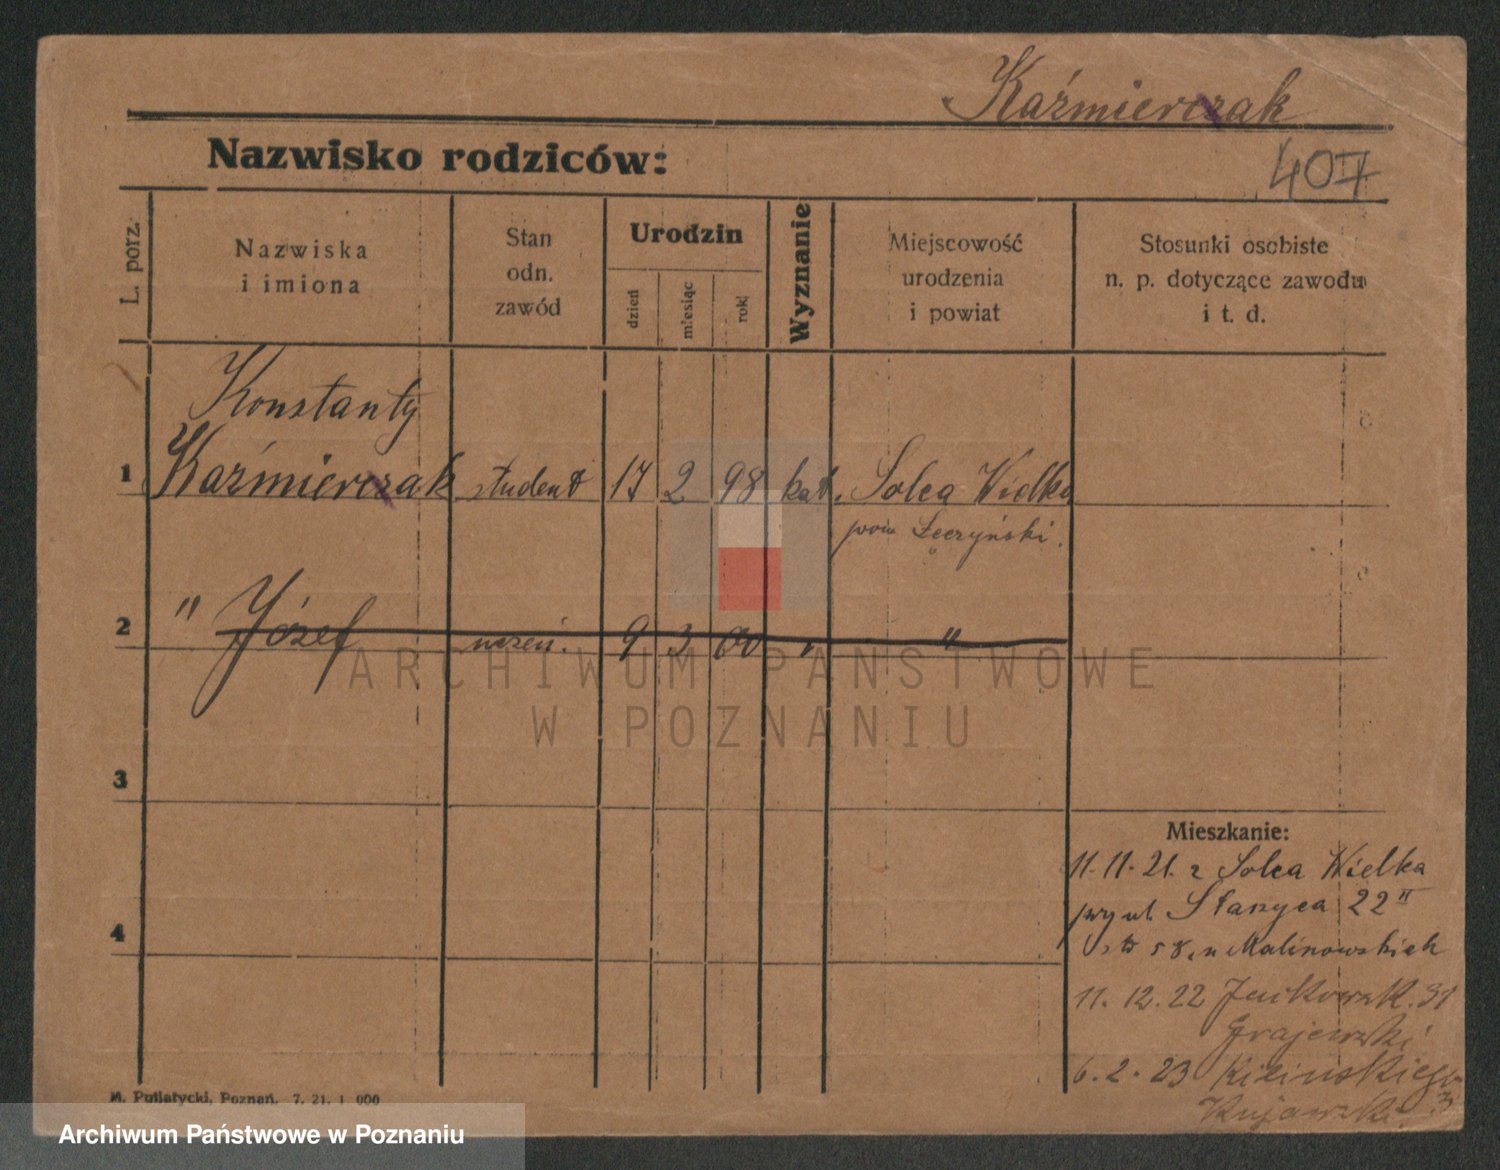 Kaźmierczak
Nazwisko rodziców:
407
L. porz.
Nazwiska
i imiona
Stan
odn.
zawód
Urodzin
dzień
miesiąc
rok
Wyznanie
Miejscowość
urodzenia
i powiat
Stosunki osobiste
n. p. dotyczące zawodu
i t. d.
Konstanty
1 Kaźmierczak student 17 2 98 kat. Solca Wielka
pow Łęczyński.
2 " Józef uczeń. 9 3 00 " "
ARCHIWUM PAŃSTWOWE
W POZNANIU
3
4
Mieszkanie:
11.11.21. z Solca Wielka
przy ul. Staszyca 22 II
u Malinowskich
11. 12. 22 31
Grajewski
6. 2. 23 Kilińskiego
Kujawski
M. Putiatycki, Poznań. 7. 21. 1 000
Archiwum Państwowe w Poznaniu